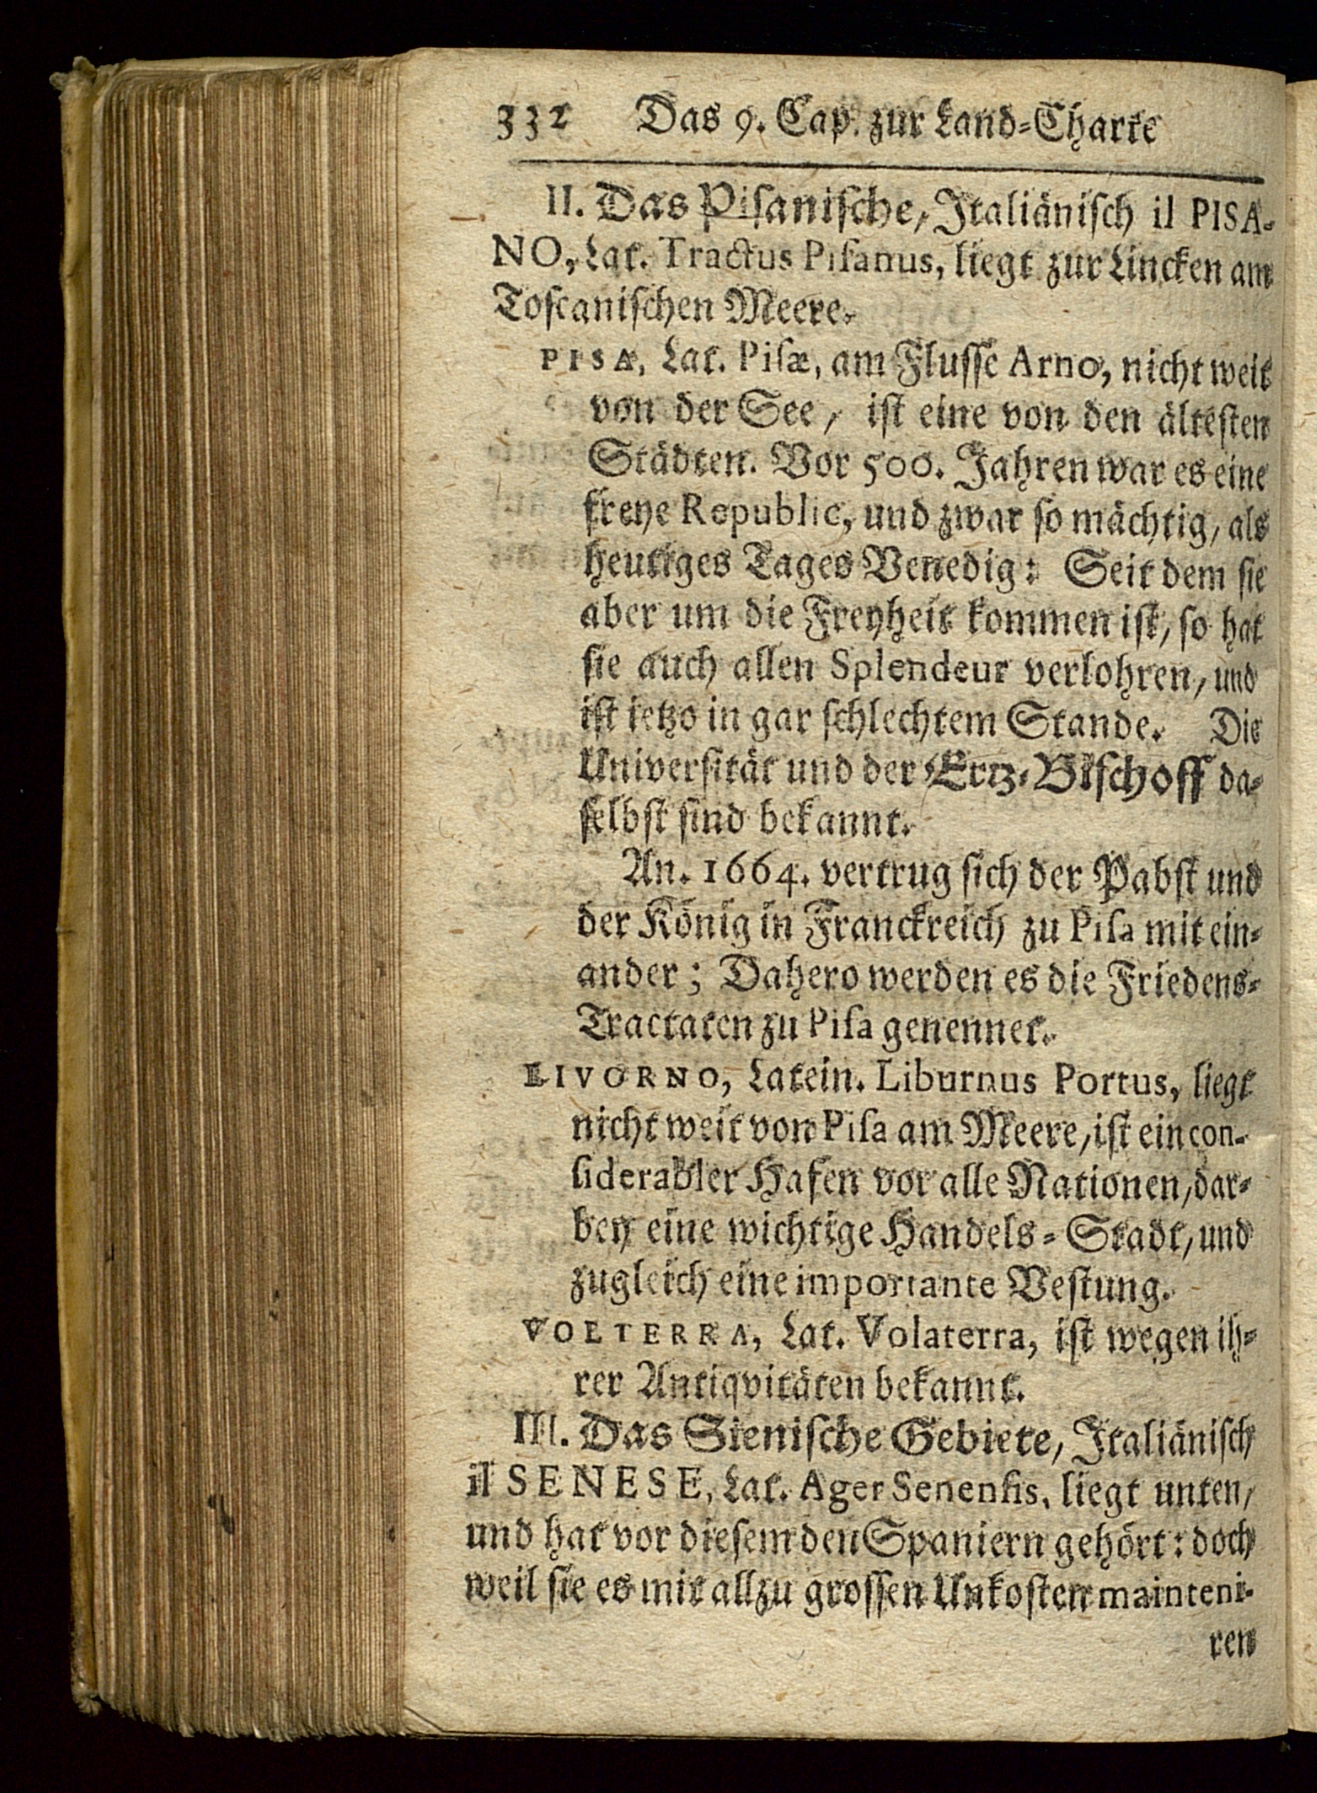 332 Das 9. Cap. zur Land-Charte
II. Das Pisanische, Italiänisch il PISA-
NO, Lat. Tractus Pisanus, liegt zur Lincken am
Toscanischen Meere.
PISA, Lat. Pisæ, am Flusse Arno, nicht weit
von der See, ist eine von den ältesten
Städten. Vor 500. Jahren war es eine
freye Republic, und zwar so mächtig, als
heutiges Tages Venedig: Seit dem sie
aber um die Freyheit kommen ist, so hat
sie auch allen Splendeur verlohren, und
ist ietzo in gar schlechtem Stande. Die
Universität und der Ertz-Bischoff da-
selbst sind bekannt.
An. 1664. vertrug sich der Pabst und
der König in Franckreich zu Pisa mit ein-
ander; Dahero werden es die Friedens-
Tractaten zu Pisa genennet.
LIVORNO, Latein. Liburnus Portus, liegt
nicht weit von Pisa am Meere, ist ein con-
siderabler Hafen vor alle Nationen, dar-
bey eine wichtige Handels-Stadt, und
zugleich eine importante Vestung.
VOLTERRA, Lat. Volaterra, ist wegen ih-
rer Antiqvitäten bekannt.
III. Das Sienische Gebiete, Italiänisch
il SENESE, Lat. Ager Senensis, liegt unten,
und hat vor diesem den Spaniern gehört: doch
weil sie es mit allzu grossen Unkosten mainteni-
ren